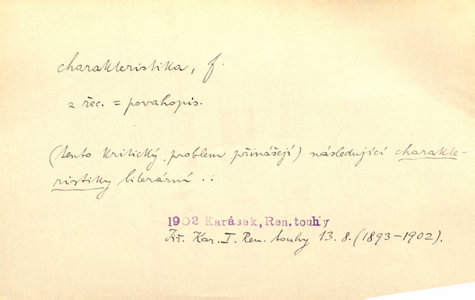 charakteristika, f.
z řec. = povahopis.
(tento kritický problem přinášejí) následující charakte-
ristiky literárná . :
1902 Karásek, Ren.touhy
Jiř. Kar. I. Ren. touhy 13. 8. (1893-1902).